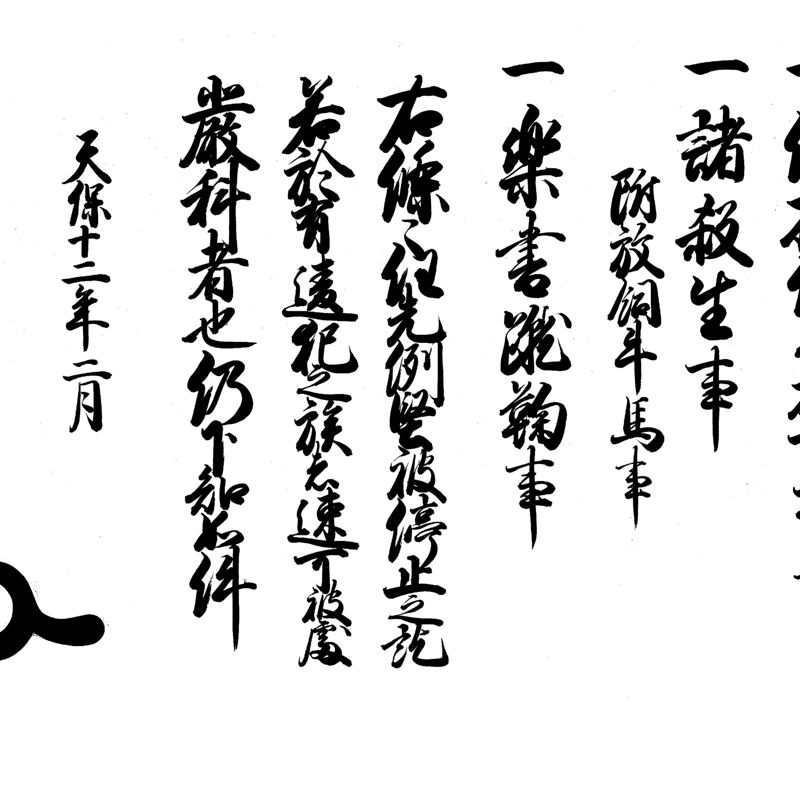 一諸殺生事
附放飼牛馬事
一楽書蹴鞠事
右條々任先例堅被停止之訖
若於有違犯之族者速可被處
嚴科者也仍下知如件
天保十二年二月